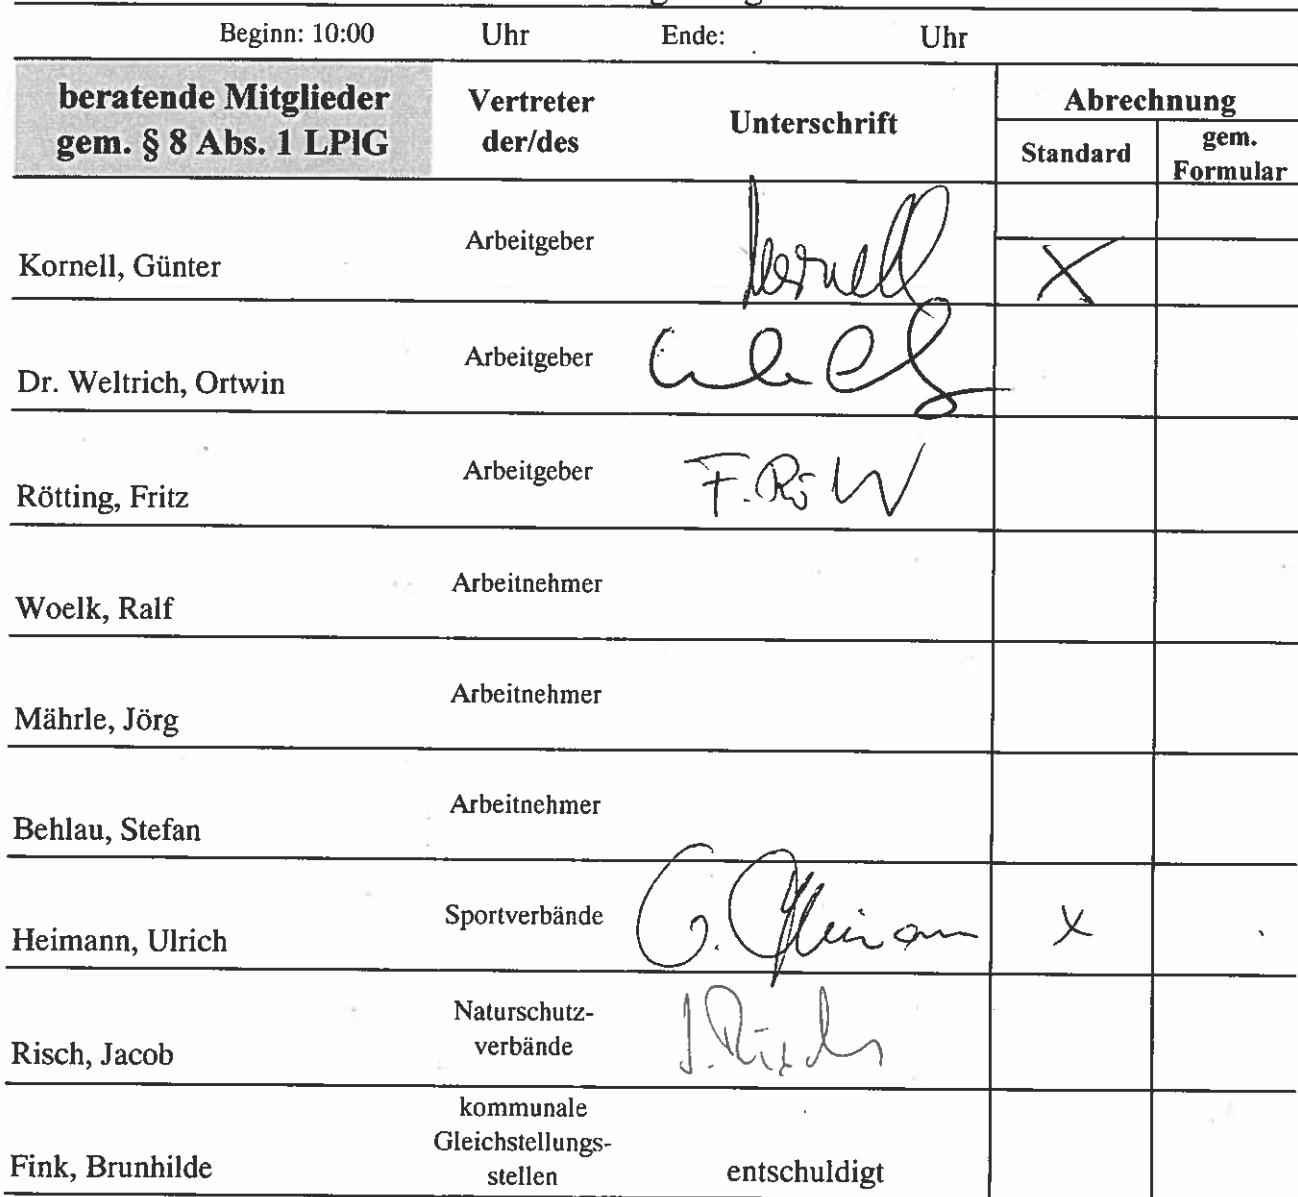 Beginn: 10:00 Uhr Ende: Uhr
beratende Mitglieder gem. § 8 Abs. 1 LPlG
Vertreter der/des
Unterschrift
Abrechnung
Standard
gem. Formular
Kornell, Günter Arbeitgeber Kornell X
Dr. Weltrich, Ortwin Arbeitgeber
Rötting, Fritz Arbeitgeber
Woelk, Ralf Arbeitnehmer
Mährle, Jörg Arbeitnehmer
Behlau, Stefan Arbeitnehmer
Heimann, Ulrich Sportverbände x
Risch, Jacob Naturschutz-
verbände J. Risch
kommunale
Gleichstellungs-
Fink, Brunhilde stellen entschuldigt